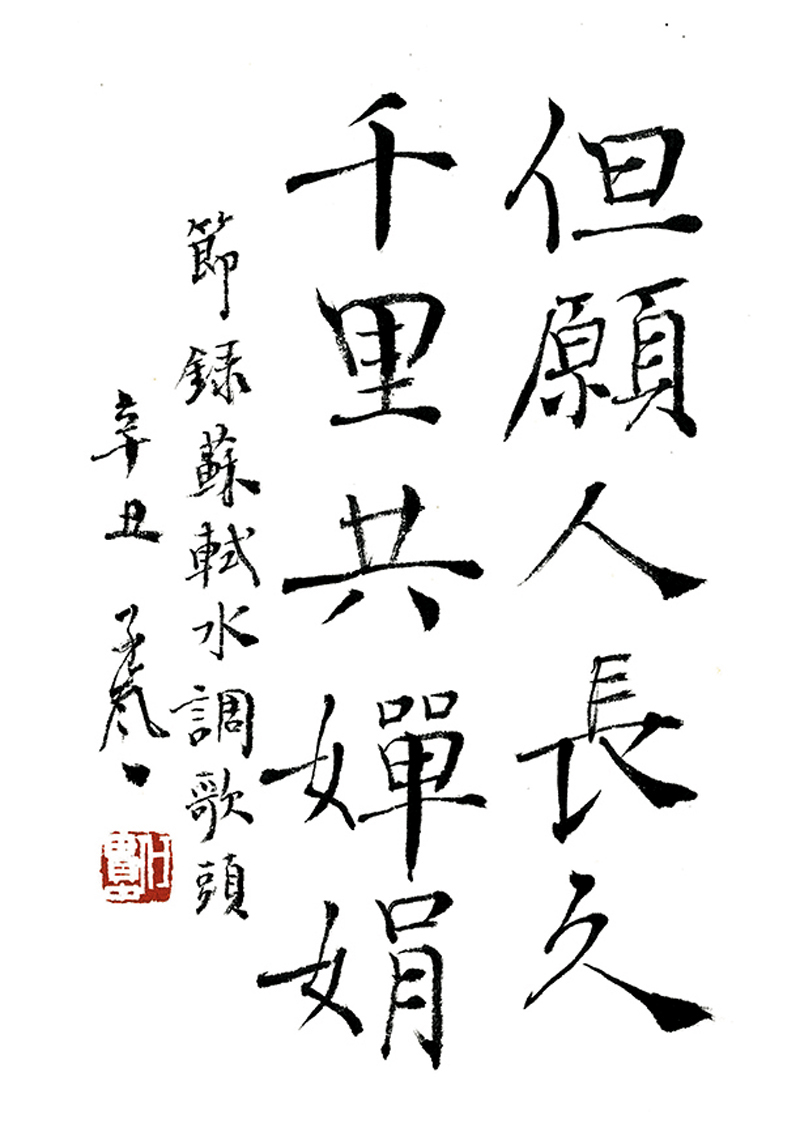 但願人長久
千里共嬋娟
節録蘇軾水調歌頭
辛丑